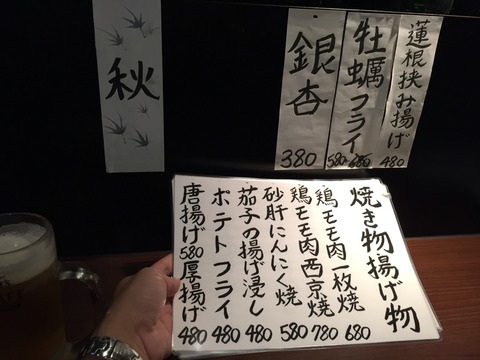 蓮根挟み揚げ 480
牡蠣フライ 580 680
銀杏 380
秋
焼き物揚げ物
鶏モモ肉一枚焼 680
鶏モモ肉西京焼 780
砂肝にんにく焼 580
茄子の揚げ浸し 480
ポテトフライ 480
唐揚げ 580 厚揚げ 480